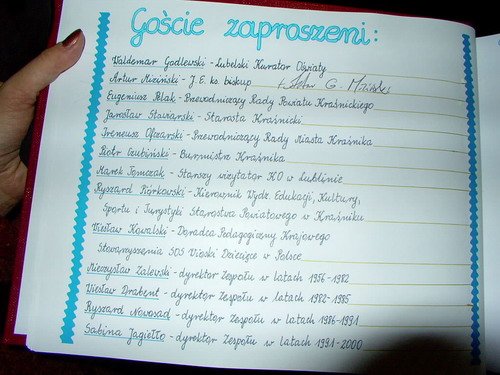 Goście zaproszeni:
Waldemar Godlewski - Lubelski Kurator Oświaty
Artur Miziński - J.E. ks. biskup
Eugeniusz Pelak - Przewodniczący Rady Powiatu Kraśnickiego
Jarosław Stawiarski - Starosta Kraśnicki
Ireneusz Ofczarski - Przewodniczący Rady Miasta Kraśnika
Piotr Czubiński - Burmistrz Kraśnika
Marek Tomczak - Starszy wizytator KO w Lublinie
Ryszard Piórkowski - Kierownik Wydz. Edukacji, Kultury,
Sportu i Turystyki Starostwa Powiatowego w Kraśniku
Wiesław Kowalski - Doradca Pedagogiczny Krajowego
Stowarzyszenia SOS Wioski Dziecięce w Polsce
Mieczysław Zalewski - dyrektor Zespołu w latach 1956-1982
Wiesław Drabent - dyrektor Zespołu w latach 1982-1985
Ryszard Nowosad - dyrektor Zespołu w latach 1986-1991
Sabina Jagiełło - dyrektor Zespołu w latach 1991-2000